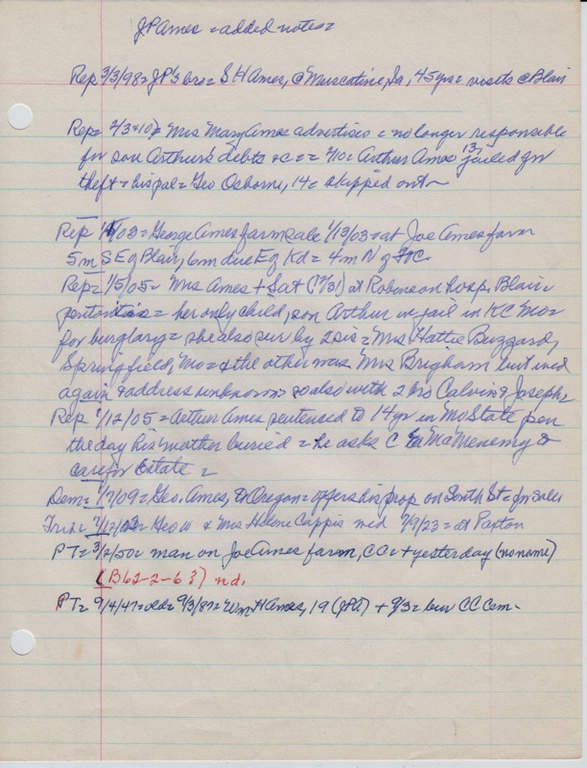 JPAmes = added notes =
Rep 3/3/98 = JP's bro = S H Ames, @ Muscatine, Ia, 45yrs = visits @ Blair
Rep = 2/3 = Mrs Mary Ames advertises = no longer responsible
for son Arthur's debts = Arthur Ames 13, jailed for
theft = his pal = Geo Osborne, 14 = skipped out
Rep 03 = George Ames farm sale 1/13/03 = at Joe Ames farm
5 m SE of Blair, 6m due E of Kd = 4m N of
Rep = 1/5/05 = Mrs Ames + Sat (12/31) at Robinson hosp, Blair
= her only child, son Arthur in jail in KC Mo =
for burglary = she also sur by 2 sis = Mrs Hattie Buzzard,
Springfield, Mo = & the other was Mrs Brigham but wed
again & address unknown = also with 2 bro Calvin & Joseph =
Rep 1/12/05 = Arthur Ames sentenced to 14yr in Mo State pen
the day his mother buried = he asks C McMenemy to
care for Estate =
Dem = 1/7/09 = Geo. Ames, Oregon = offers his prop on South St = for sale
Geo W & Mrs Helene Cappis med 7/9/23 = at Paxton
PT = 3/2/50 = man on Joe Ames farm, CC = + yesterday (no name)
(B62-2-63) nd.
PT = 9/4/47 = 9/3/87 = Wm H Ames, 19 + 9/3 = bur CC Cem.